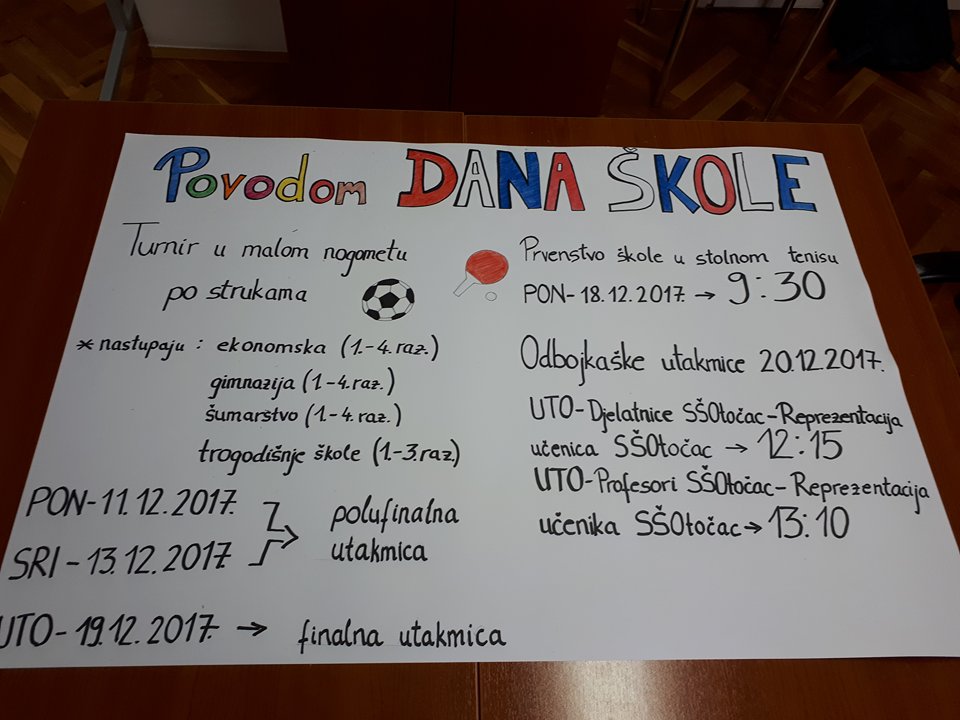 Povodom DANA ŠKOLE
Turnir u malom nogometu
po strukama
* nastupaju : ekonomska (1.-4. raz.)
gimnazija (1-4. raz.)
šumarstvo (1-4. raz.)
trogodišnje škole (1.-3. raz.)
PON-11.12.2017.
SRI - 13.12.2017
polufinalna
utakmica
UTO- 19.12.2017. → finalna utakmica
Prvenstvo škole u stolnom tenisu
PON- 18.12.2017. → 9:30
Odbojkaške utakmice 20.12.2017.
UTO-Djelatnice SŠOtočac-Reprezentacija
učenica SŠOtočac → 12:15
UTO-Profesori SŠOtočac-Reprezentacija
učenika SŠOtočac→ 13:10